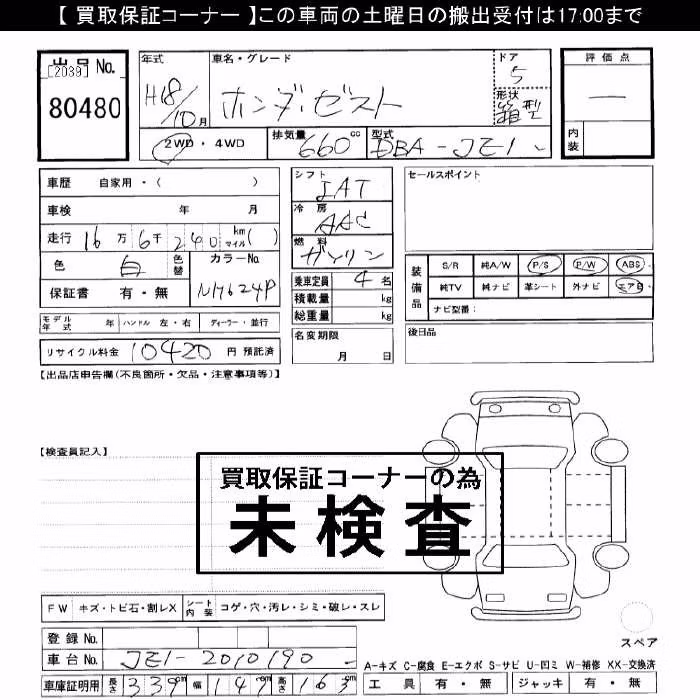 【 買取保証コーナー 】この車両の土曜日の搬出受付は17:00まで
出品 No.
[2039]
80480
年式 H18/10月
車名・グレード ホンダ ゼスト
ドア 5
形状 箱型
評価点 —
内装
2WD ・ 4WD
排気量 660 cc
型式 DBA-JE1
車歴 自家用・( )
車検 年 月
走行 16万6千240 km マイル( )
色 白 色替
カラーNo. NH624P
保証書 有・無
モデル年式 年 ハンドル 左・右 ディーラー・並行
リサイクル料金 10420 円 預託済
シフト IAT
冷房 AAC
燃料 ガソリン
乗車定員 4 名
積載量 kg
総重量 kg
名変期限
月 日
セールスポイント
装備品
S/R 純A/W P/S P/W ABS
純TV 純ナビ 革シート 外ナビ エアB
ナビ型番:
後日品
【出品店申告欄(不良箇所・欠品・注意事項等)】
【検査員記入】
買取保証コーナーの為
未検査
FW キズ・トビ石・割レX シート内装 コゲ・穴・汚レ・シミ・破レ・スレ
登録 No.
車台 No. JE1-2010190
車庫証明用 長さ 339cm 幅 147cm 高さ 163cm
スペア
A-キズ C-腐食 E-エクボ S-サビ U-凹ミ W-補修 XX-交換済
工具 有・無 ジャッキ 有・無